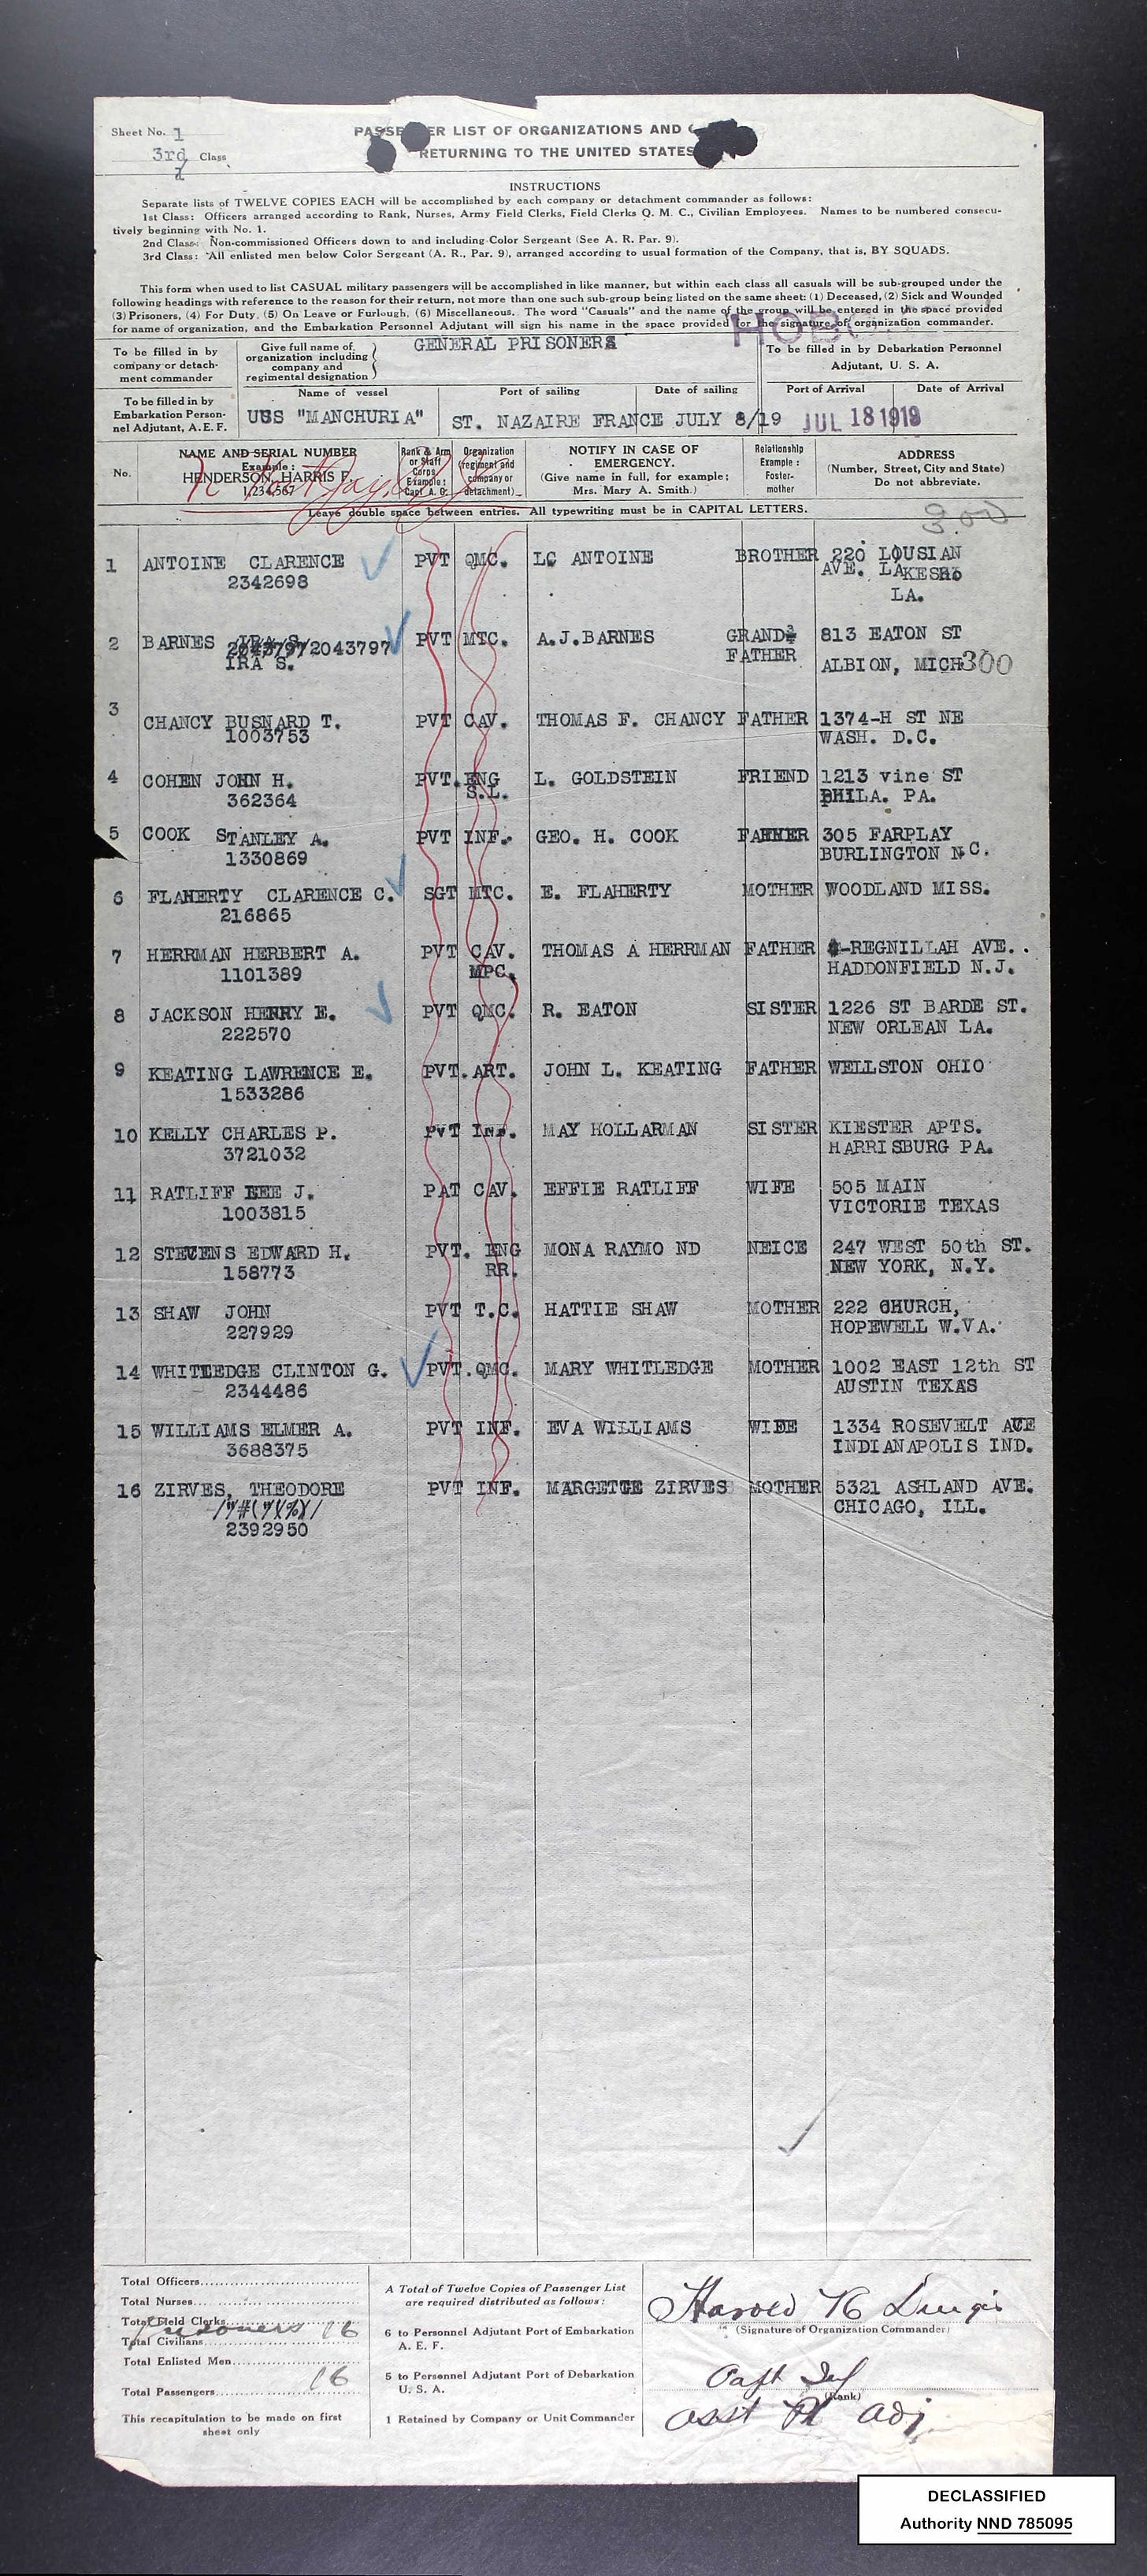 Sheet No. 1
3rd Class
1
PASSENGER LIST OF ORGANIZATIONS AND
RETURNING TO THE UNITED STATES
INSTRUCTIONS
Separate lists of TWELVE COPIES EACH will be accomplished by each company or detachment commander as follows:
1st Class: Officers arranged according to Rank, Nurses, Army Field Clerks, Field Clerks Q. M. C., Civilian Employees. Names to be numbered consecu-
tively beginning with No. 1.
2nd Class: Non-commissioned Officers down to and including Color Sergeant (See A. R. Par. 9).
3rd Class: All enlisted men below Color Sergeant (A. R., Par. 9), arranged according to usual formation of the Company, that is, BY SQUADS.
This form when used to list CASUAL military passengers will be accomplished in like manner, but within each class all casuals will be sub-grouped under the
following headings with reference to the reason for their return, not more than one such sub-group being listed on the same sheet: (1) Deceased, (2) Sick and Wounded
(3) Prisoners, (4) For Duty, (5) On Leave or Furlough, (6) Miscellaneous. The word "Casuals" and the name of the group will be entered in the space provided
for name of organization, and the Embarkation Personnel Adjutant will sign his name in the space provided for the signature of organization commander.
To be filled in by company or detachment commander
Give full name of organization including company and regimental designation
GENERAL PRISONERS
To be filled in by Debarkation Personnel Adjutant, U. S. A.
To be filled in by Embarkation Personnel Adjutant, A. E. F.
Name of vessel Port of sailing Date of sailing Port of Arrival Date of Arrival
USS "MANCHURIA" ST. NAZAIRE FRANCE JULY 8/19 JUL 18 1919
No.
NAME AND SERIAL NUMBER
Example:
HENDERSON, HARRIS F.
1,234,567
Rank & Arm or Staff Corps Example: Capt A. G.
Organization (regiment and company or detachment)
NOTIFY IN CASE OF EMERGENCY.
(Give name in full, for example; Mrs. Mary A. Smith.)
Relationship Example: Foster-mother
ADDRESS
(Number, Street, City and State)
Do not abbreviate.
Leave double space between entries. All typewriting must be in CAPITAL LETTERS.
300
1 ANTOINE CLARENCE PVT QMC. LC ANTOINE BROTHER 220 LOUSIAN
2342698 AVE. LAKES
LA.
2 BARNES 2043797 PVT MTC. A.J.BARNES GRAND 813 EATON ST
IRA S. FATHER ALBION, MICH 300
3 CHANCY BUSNARD T. PVT CAV. THOMAS F. CHANCY FATHER 1374-H ST NE
1003753 WASH. D.C.
4 COHEN JOHN H. PVT. ENG L. GOLDSTEIN FRIEND 1213 vine ST
362364 S.L. PHILA. PA.
5 COOK STANLEY A. PVT INF. GEO. H. COOK FATHER 305 FARPLAY
1330869 BURLINGTON N.C.
6 FLAHERTY CLARENCE C. SGT MTC. E. FLAHERTY MOTHER WOODLAND MISS.
216865
7 HERRMAN HERBERT A. PVT CAV. THOMAS A HERRMAN FATHER -REGNILLAH AVE. .
1101389 MPC. HADDONFIELD N.J.
8 JACKSON HENRY E. PVT QMC. R. EATON SISTER 1226 ST BARDE ST.
222570 NEW ORLEAN LA.
9 KEATING LAWRENCE E. PVT. ART. JOHN L. KEATING FATHER WELLSTON OHIO
1533286
10 KELLY CHARLES P. PVT INF. MAY HOLLARMAN SISTER KIESTER APTS.
3721032 HARRISBURG PA.
11 RATLIFF LEE J. PAT CAV. EFFIE RATLIFF WIFE 505 MAIN
1003815 VICTORIE TEXAS
12 STEVENS EDWARD H. PVT. ENG MONA RAYMO ND NEICE 247 WEST 50th ST.
158773 RR. NEW YORK, N.Y.
13 SHAW JOHN PVT T.C. HATTIE SHAW MOTHER 222 CHURCH,
227929 HOPEWELL W.VA.
14 WHITLEDGE CLINTON G. PVT. QMC. MARY WHITLEDGE MOTHER 1002 EAST 12th ST
2344486 AUSTIN TEXAS
15 WILLIAMS ELMER A. PVT INF. EVA WILLIAMS WIFE 1334 ROSEVELT AVE
3688375 INDIANAPOLIS IND.
16 ZIRVES, THEODORE PVT INF. MARGETTE ZIRVES MOTHER 5321 ASHLAND AVE.
2392950 CHICAGO, ILL.
Total Officers
Total Nurses
Total Field Clerks
Prisoners 16
Total Civilians
Total Enlisted Men
Total Passengers 16
This recapitulation to be made on first sheet only
A Total of Twelve Copies of Passenger List are required distributed as follows:
6 to Personnel Adjutant Port of Embarkation A. E. F.
5 to Personnel Adjutant Port of Debarkation U. S. A.
1 Retained by Company or Unit Commander
Harold
(Signature of Organization Commander)
Capt Inf
(Rank)
asst adj
DECLASSIFIED
Authority NND 785095